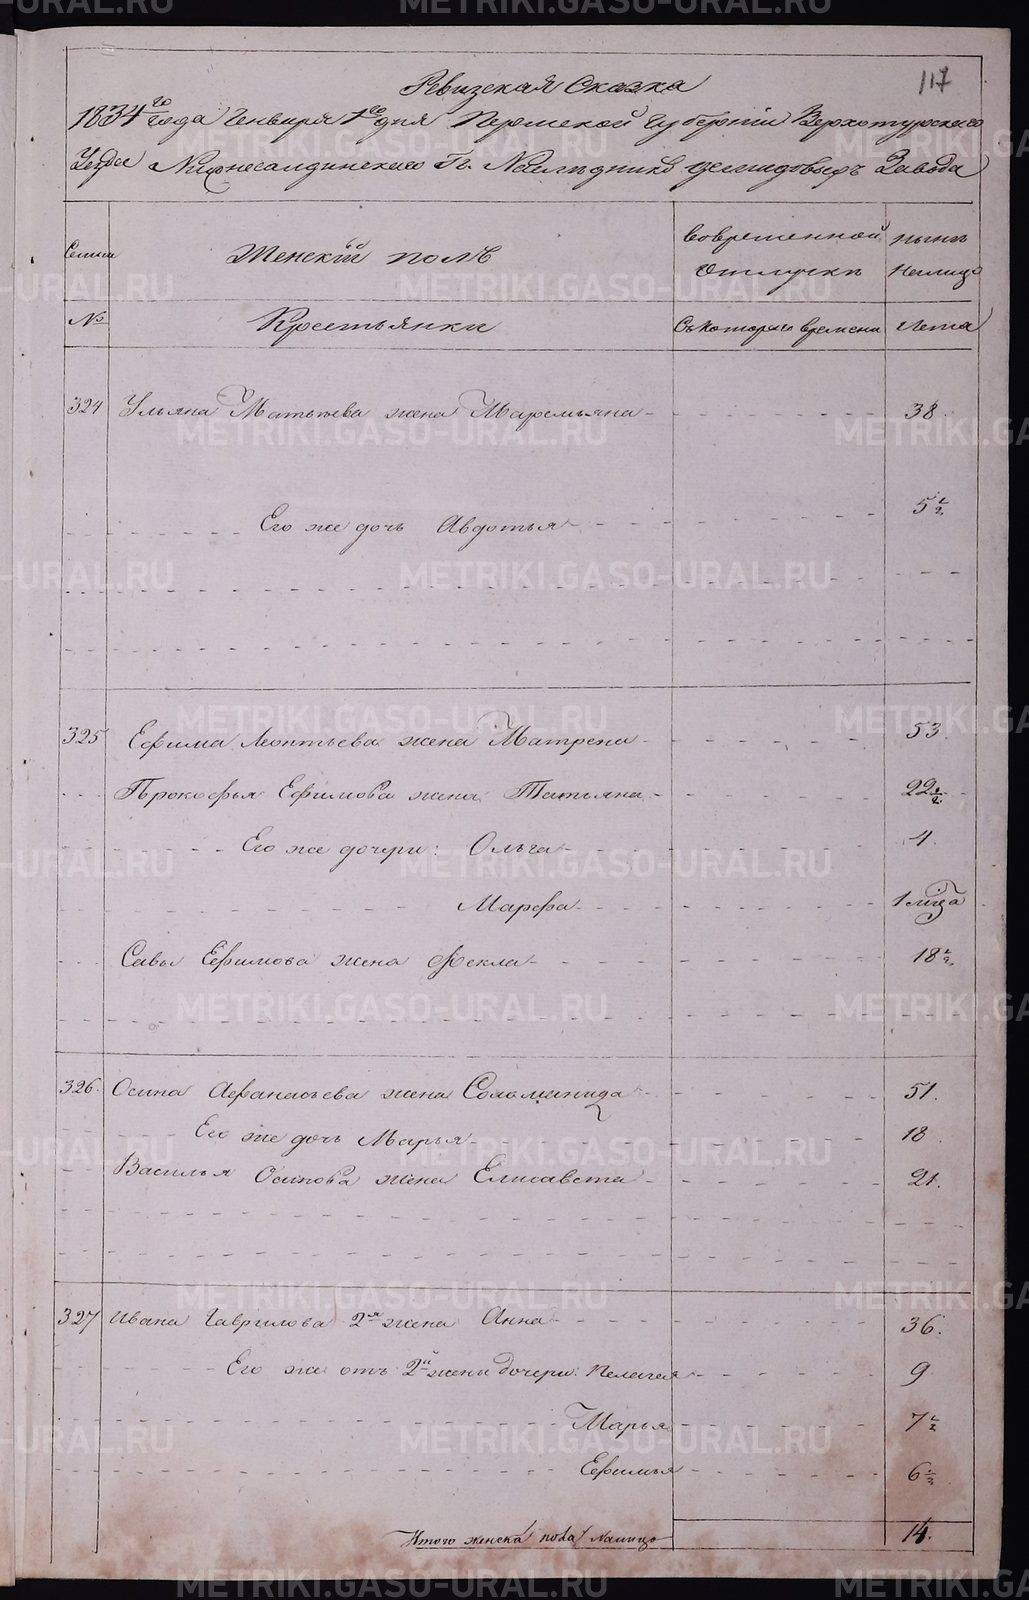 117
Ревизская Сказка
1834го года Генваря 1го дня Пермской Губернии Верхотурскаго
Уезда Нижнесалдинскаго Гг. Наследников Демидовыхъ Завода
Семьи Женскій полъ Вовременной отлучке ныне Налицо
№ Крестьянки Съ котораго времени Лета
324 Ульяна Матвеева жена Маремьяна 38.
Его же дочь Авдотья 5 1/2
325 Ефима Леонтьева жена Матрена 53.
Прокофья Ефимова жена Татьяна 22 1/2
Его же дочери: Ольга 4.
Марфа 1 м-ца
Савы Ефимова жена Фекла 18 1/2
326. Осипа Афанасьева жена Соломинида 51.
Его же дочь Марья 18
Василья Осипова жена Елисавета 21.
327 Ивана Гаврилова 2я жена Анна 36.
Его же отъ 2й жены дочери: Пелагея 9
Марья 7 1/2
Ефимья 6 1/2
Итого женска пола Налицо 14.
METRIKI.GASO-URAL.RU